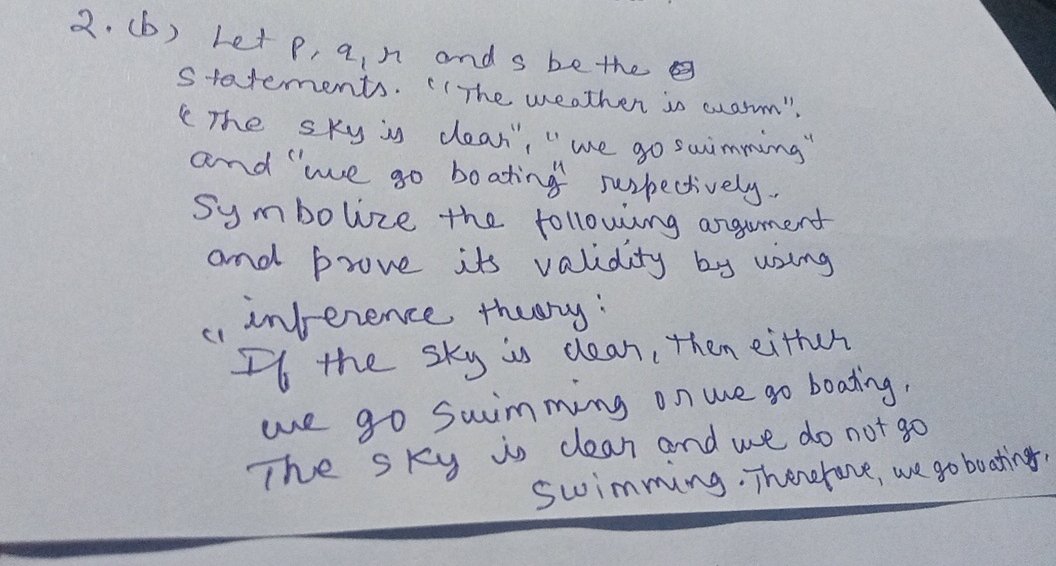 2. (b) Let p, q, r and s be the
statements. "The weather is warm".
"The sky is clear", "we go swimming"
and "we go boating" respectively.
Symbolize the following argument
and prove its validity by using
inference theory:
"If the sky is clear, then either
we go swimming or we go boating.
The sky is clear and we do not go
swimming. Therefore, we go boating.